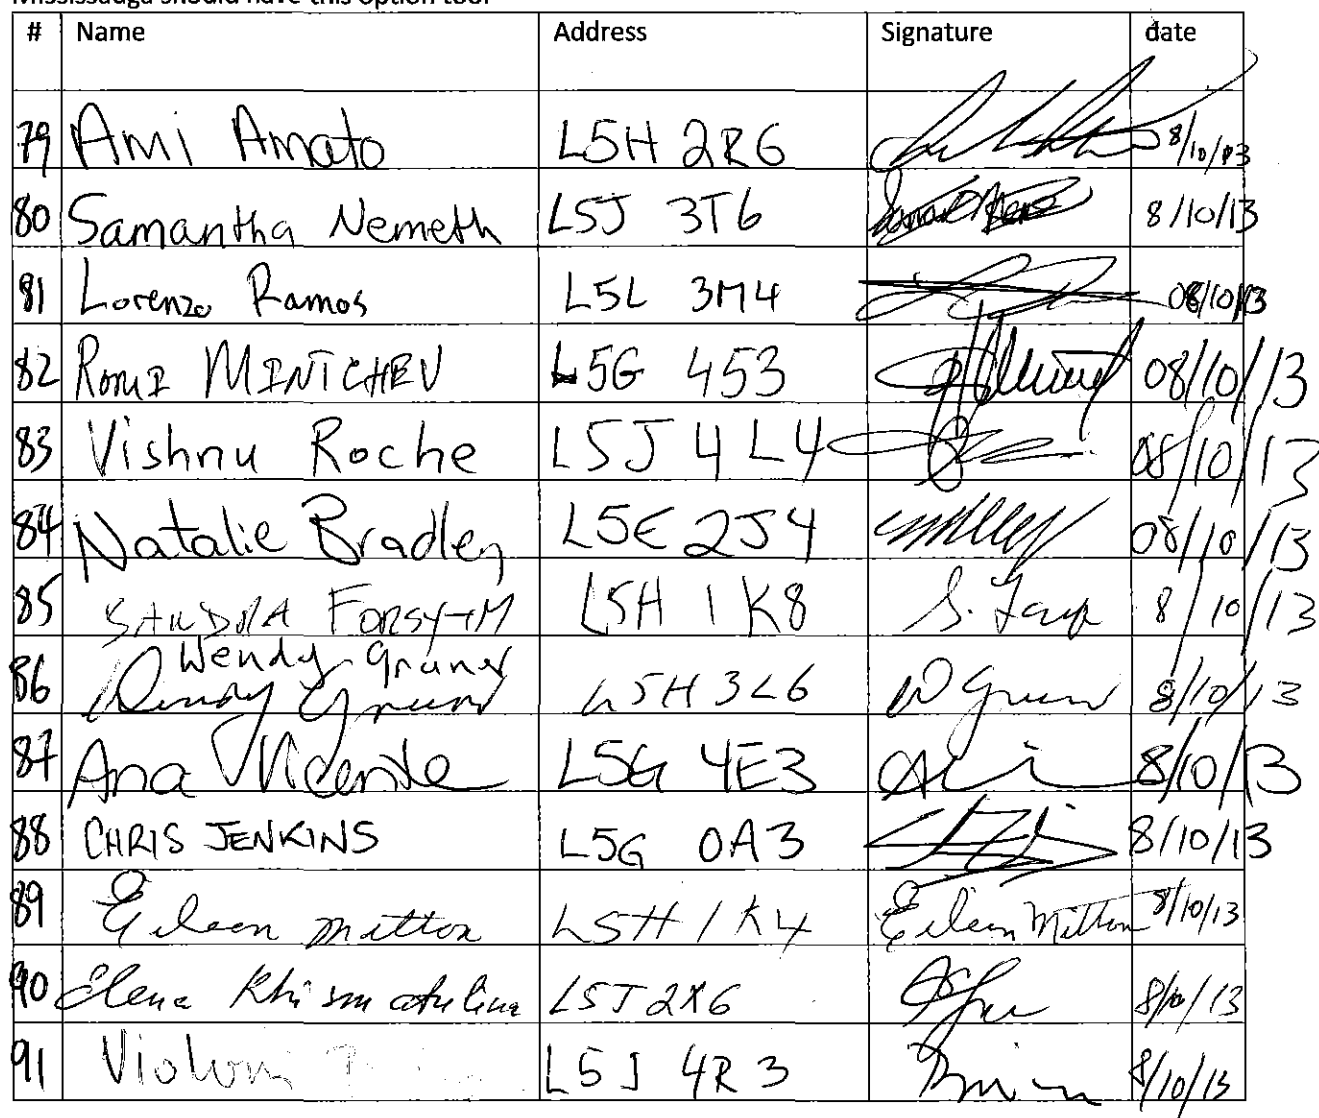 Mississauga should have this option too.
# Name Address Signature date
79 Ami Amato L5H 2R6 8/10/13
80 Samantha Nemeth L5J 3T6 8/10/13
81 Lorenzo Ramos L5L 3M4 08/10/13
82 Romi MINTCHEV L5G 4S3 08/10/13
83 Vishnu Roche L5J 4L4 08/10/13
84 Natalie Bradley L5E 2J4 08/10/13
85 SANDRA FORSYTH L5H 1K8 S. 8/10/13
86 Wendy Gruner L5H 3L6 W Gruner 8/10/13
87 Ana Vicente L5G 4E3 8/10/13
88 CHRIS JENKINS L5G 0A3 8/10/13
89 Eileen Mitton L5H 1K4 Eileen Mitton 8/10/13
90 Elena Khismatulina L5J 2X6 8/10/13
91 L5J 4R3 8/10/13